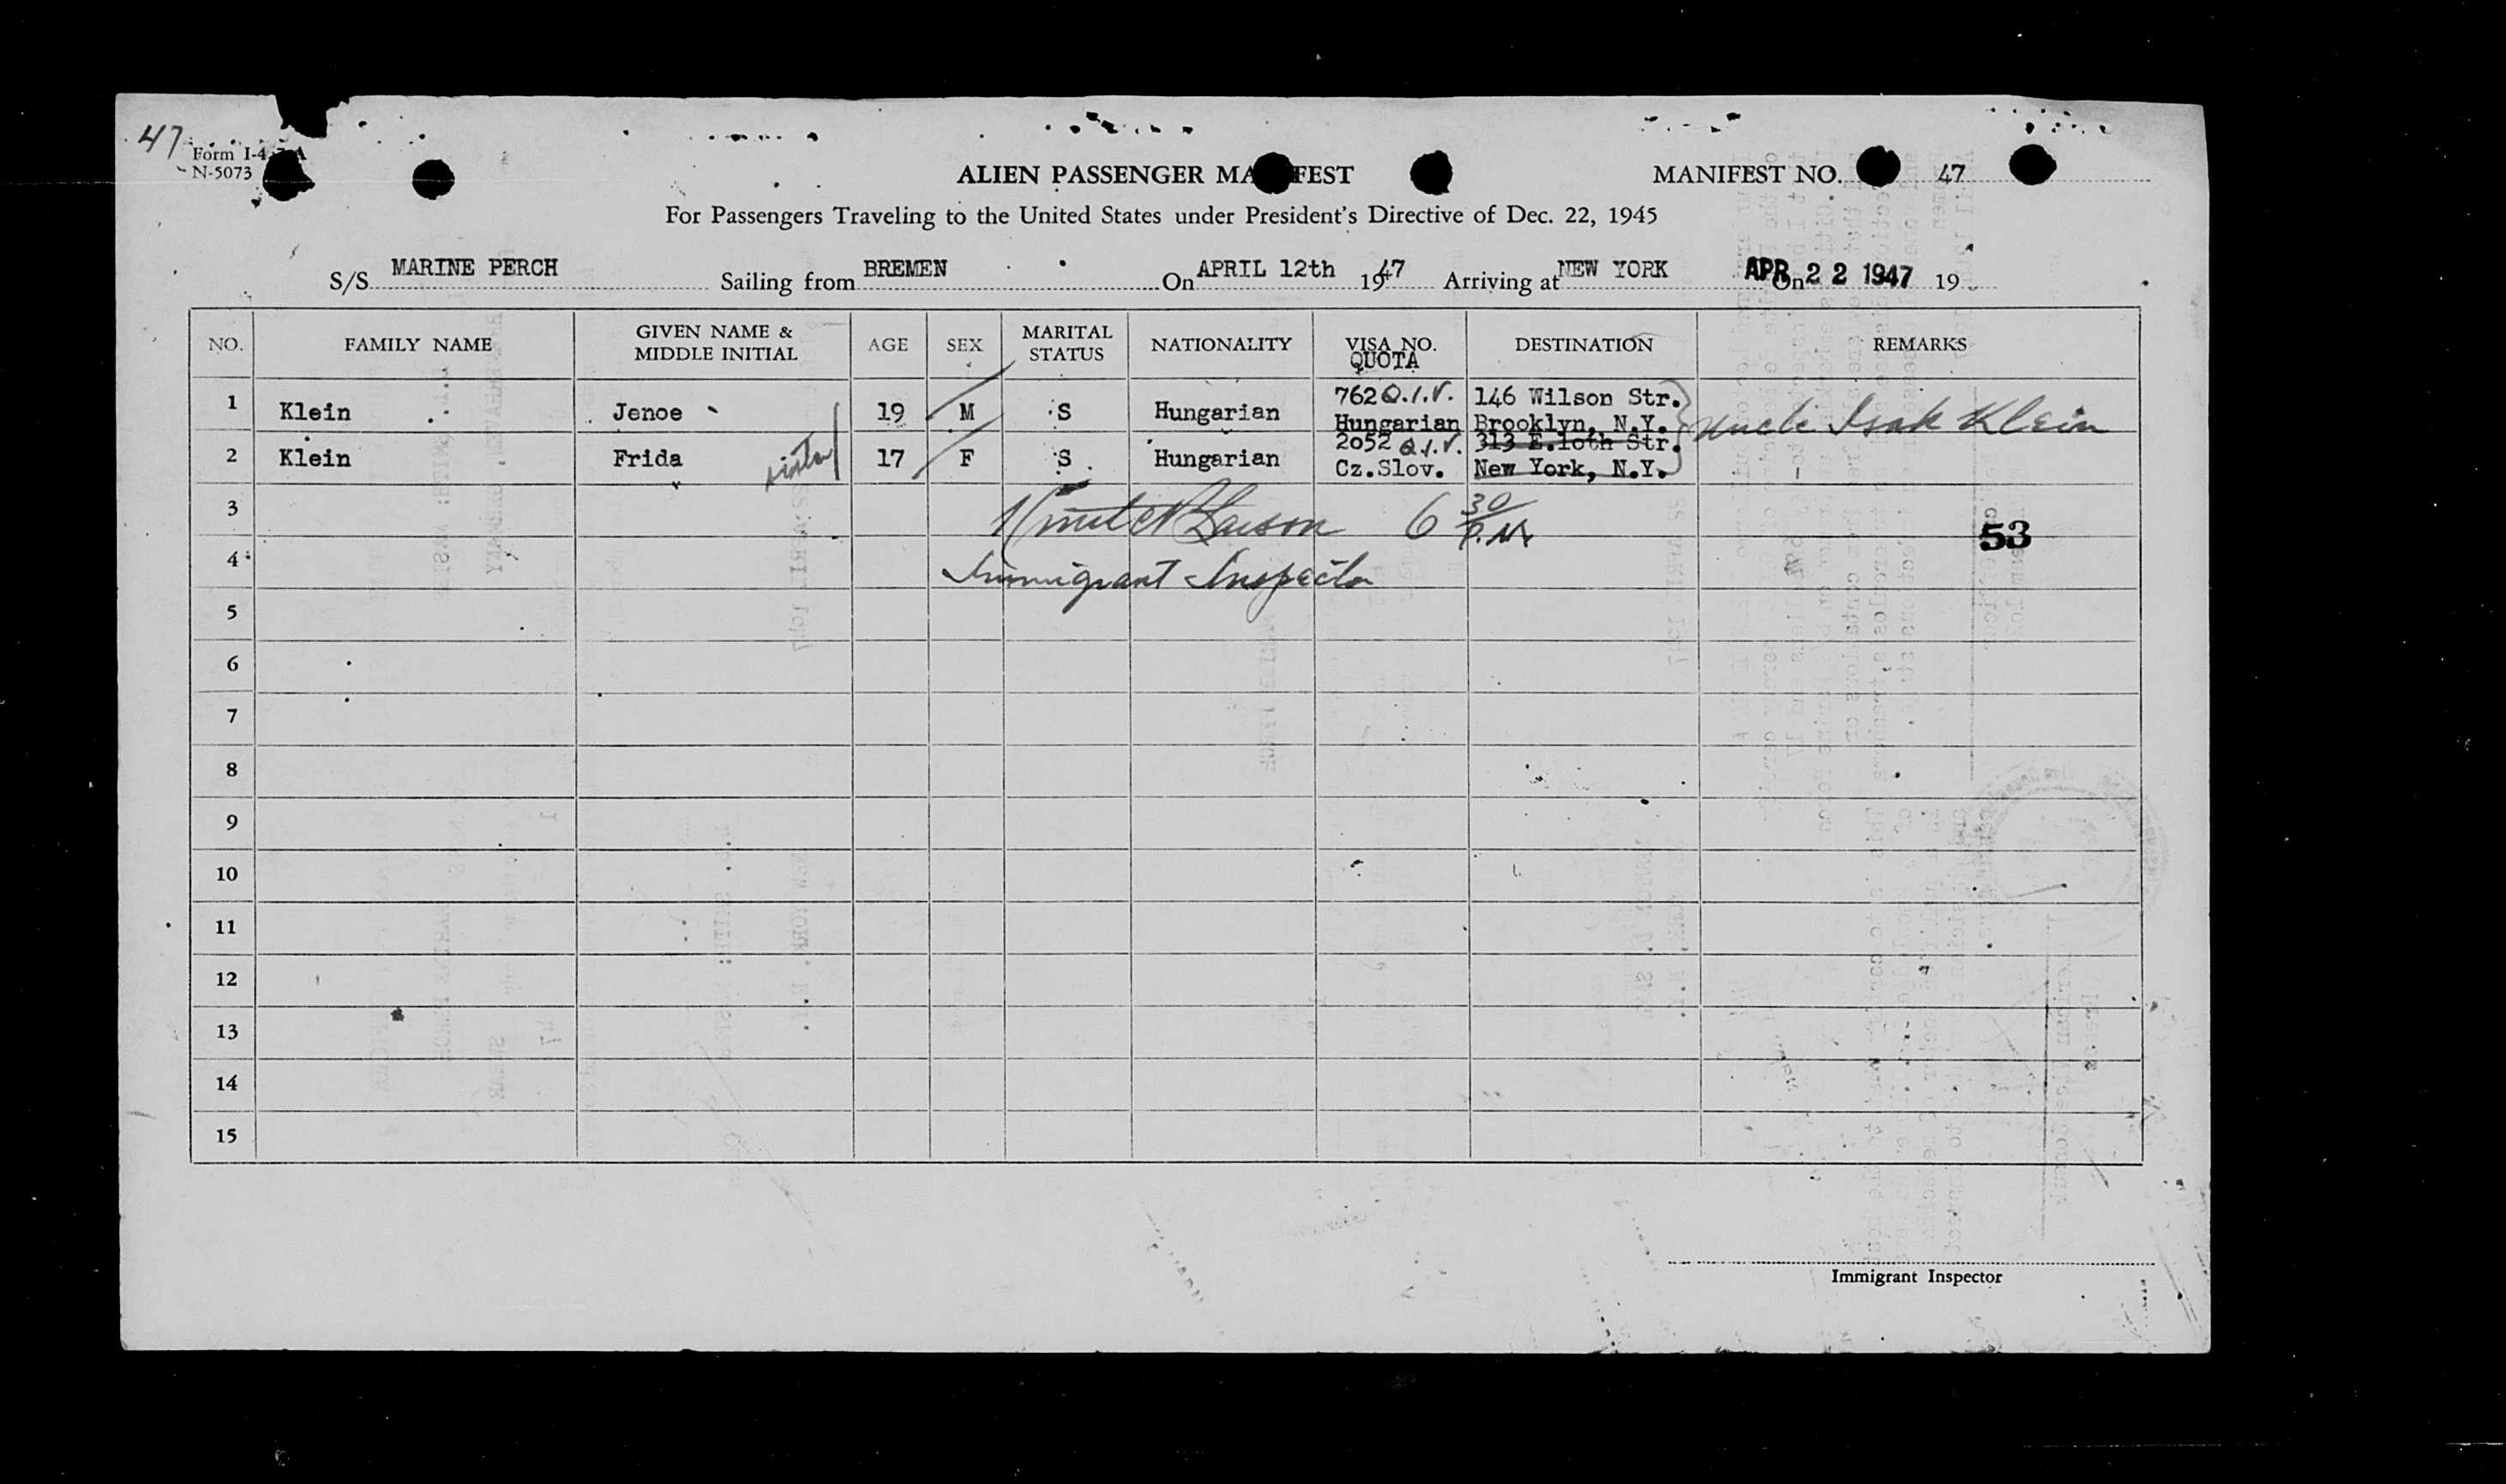 47
Form I-4
N-5073
ALIEN PASSENGER MA FEST
MANIFEST NO. 47
For Passengers Traveling to the United States under President's Directive of Dec. 22, 1945
S/S MARINE PERCH Sailing from BREMEN On APRIL 12th 1947 Arriving at NEW YORK On APR 22 1947 19
NO. FAMILY NAME GIVEN NAME & MIDDLE INITIAL AGE SEX MARITAL STATUS NATIONALITY VISA NO. QUOTA DESTINATION REMARKS
1 Klein Jenoe 19 M S Hungarian 762 Q.I.V. Hungarian 146 Wilson Str. Brooklyn, N.Y. Uncle Isak Klein
2 Klein Frida sister 17 F S Hungarian 2052 Q.I.V. Cz.Slov. 313 E.10th Str. New York, N.Y.
3 6 30 P.M.
53
4 Immigrant Inspector
5
6
7
8
9
10
11
12
13
14
15
Immigrant Inspector